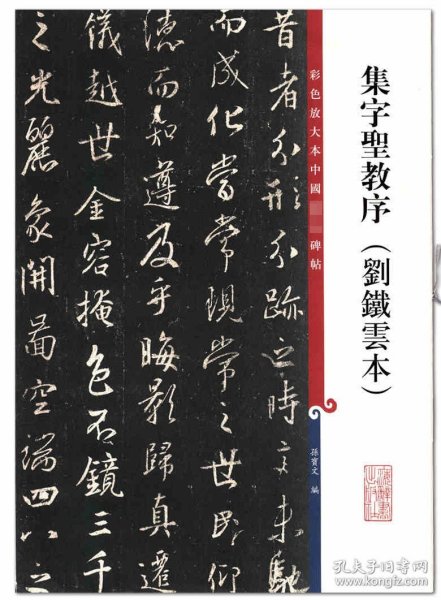 集字聖教序（劉鐵雲本）
彩色放大本中國 碑帖
孫寶文 編
昔者分形分跡之時言未馳
而成化當常現常之世民仰
德而知遵及乎晦影歸真遷
儀越世金容掩色不鏡三千
之光麗象開圖空端四八之
孔夫子旧书网